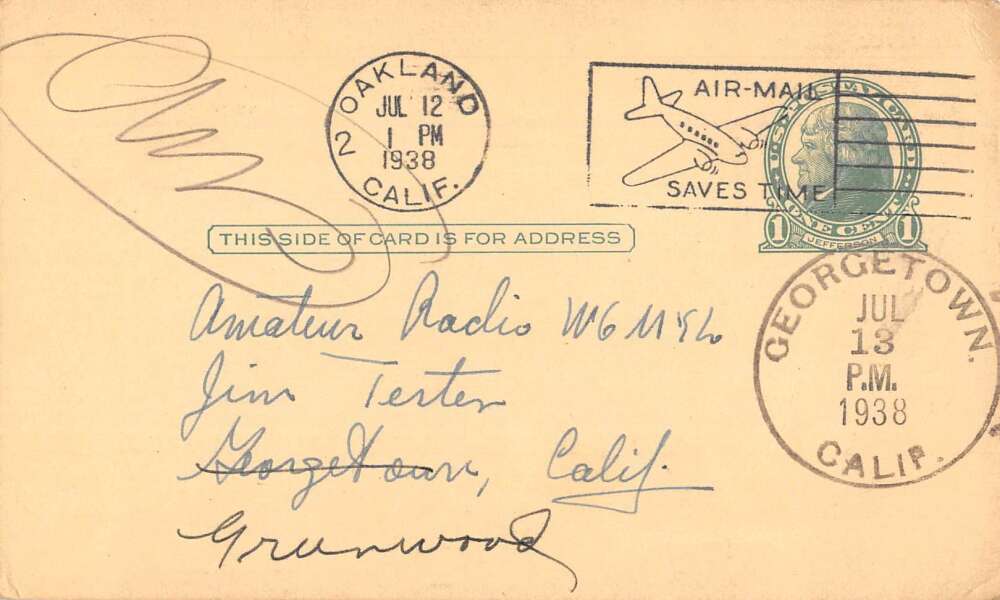 OAKLAND
JUL 12
1 PM
1938
2
CALIF.
AIR-MAIL
SAVES TIME
U.S. POSTAL CARD
1 ONE CENT 1
JEFFERSON
THIS SIDE OF CARD IS FOR ADDRESS
GEORGETOWN.
JUL
13
P.M.
1938
CALIF.
Amateur Radio
Jim Tester
Georgetown, Calif.
Greenwood